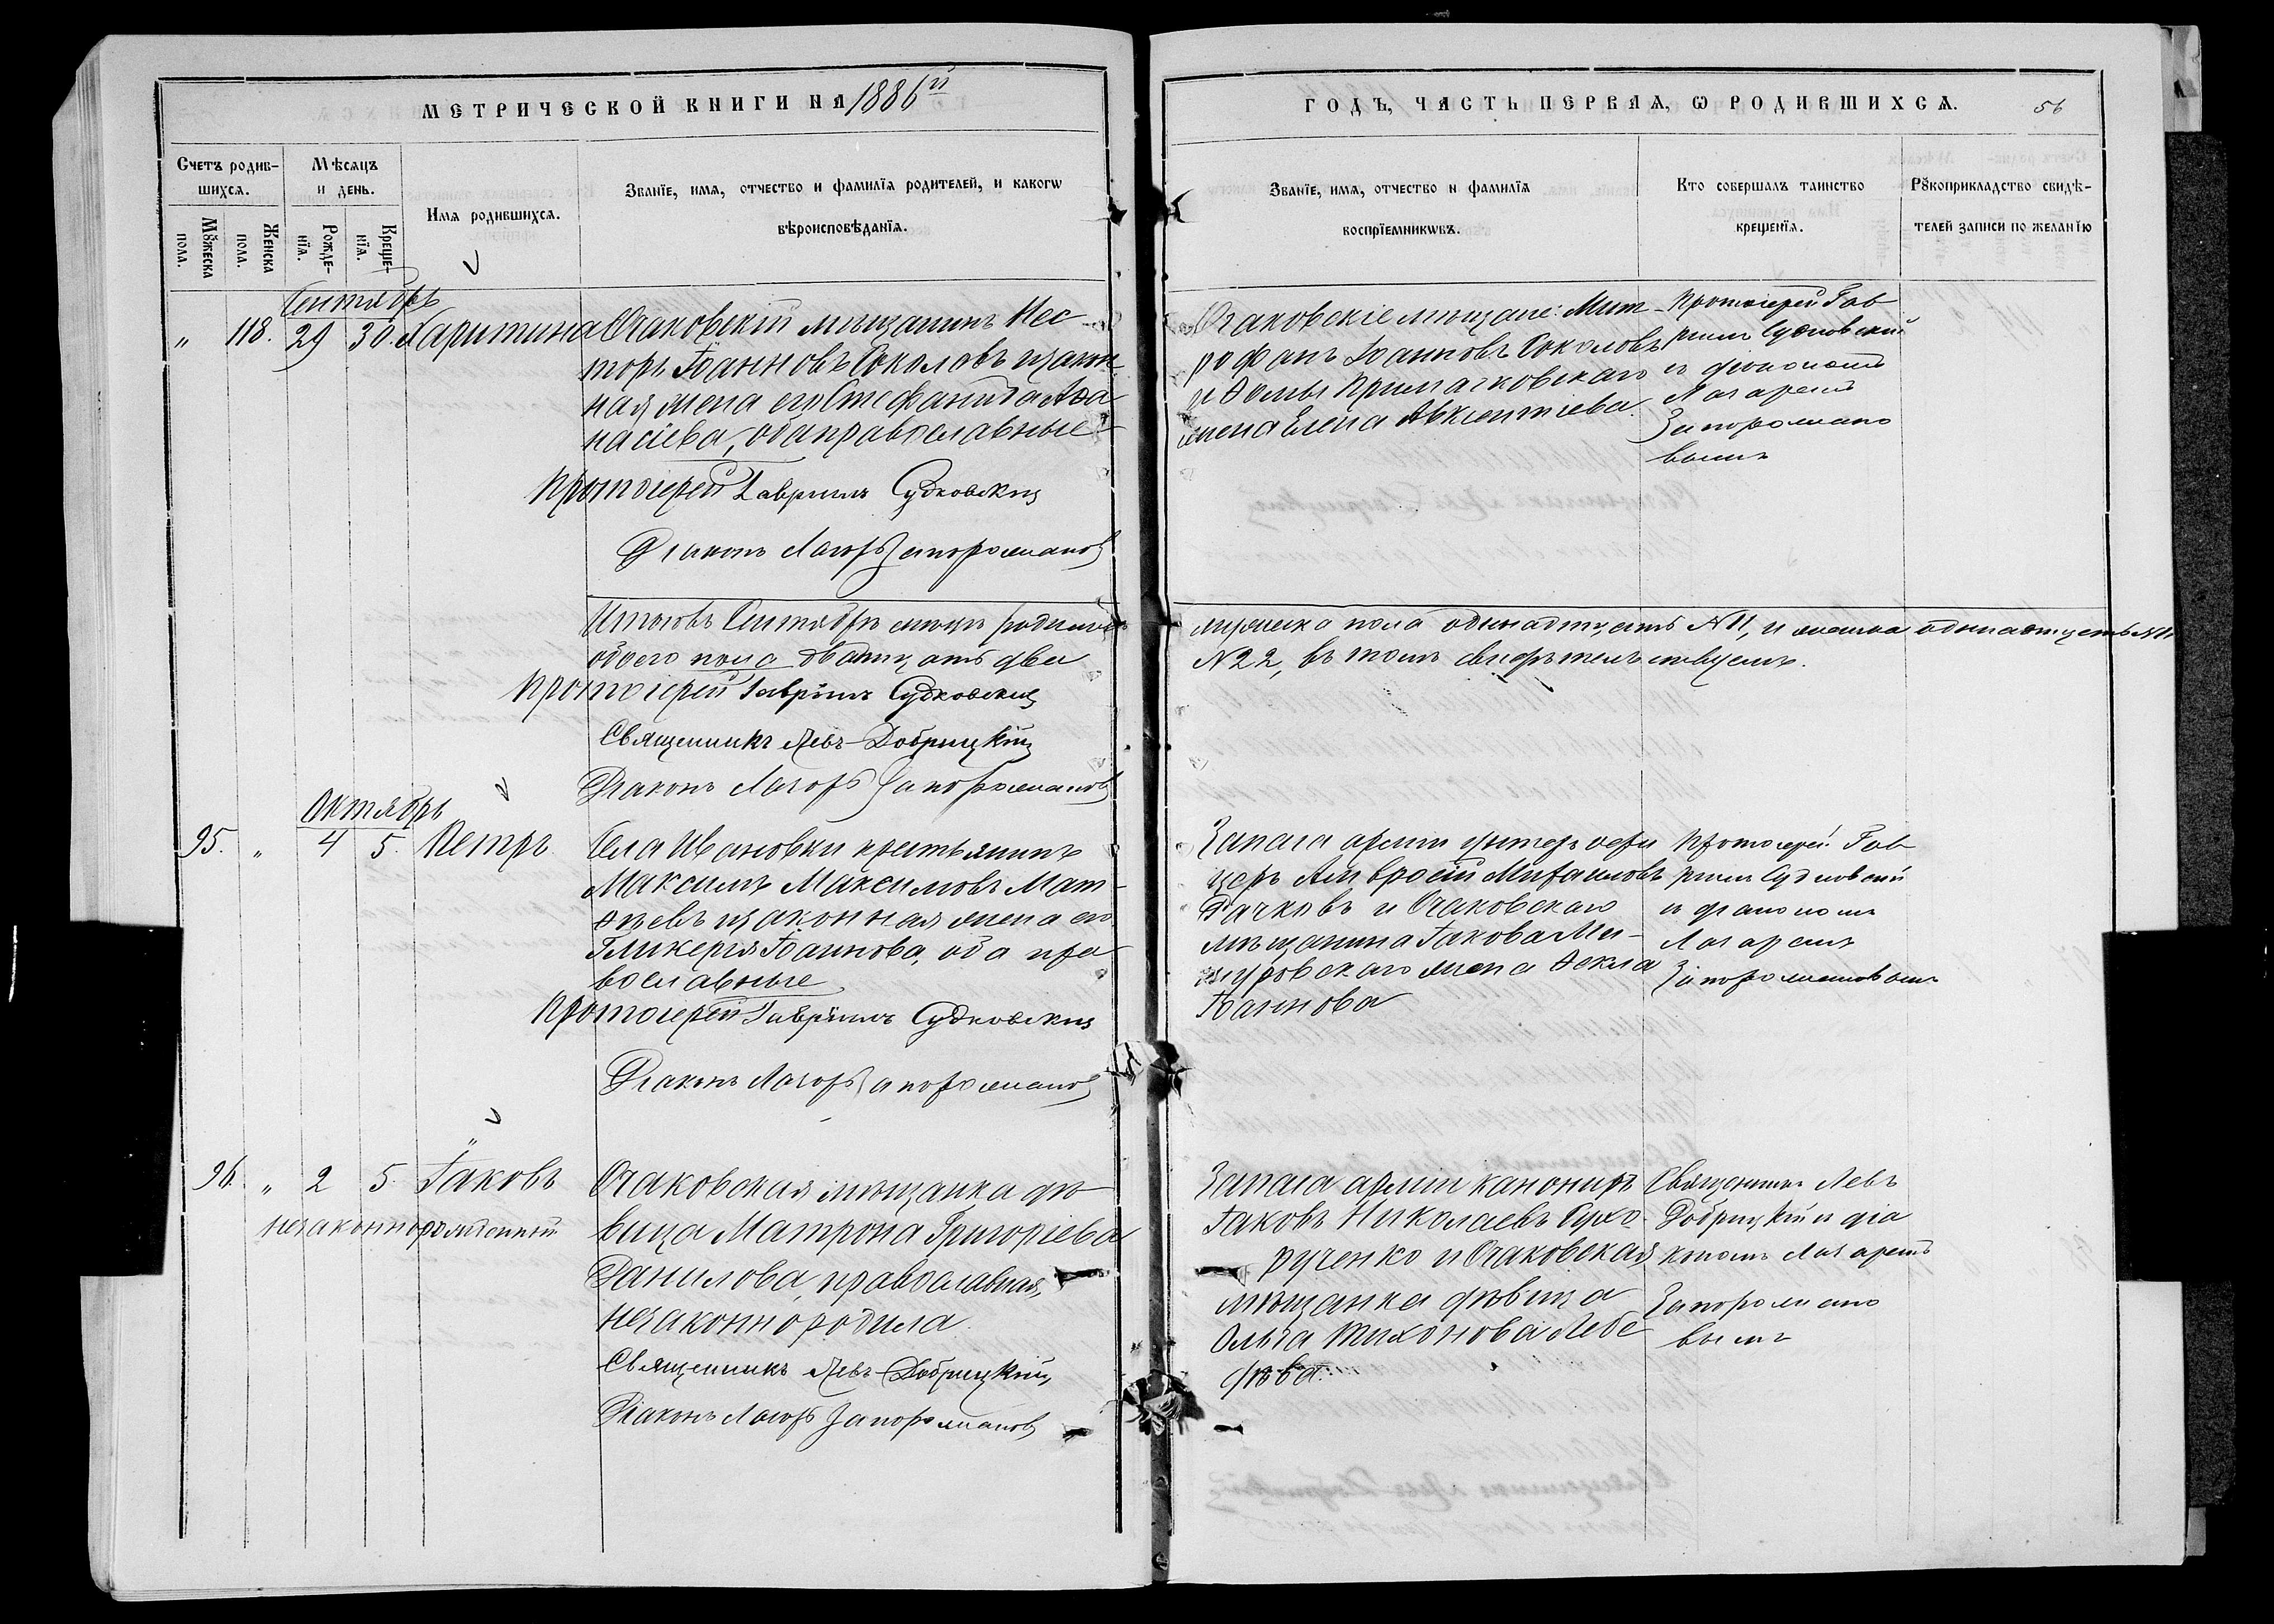 МЕТРИЧЕСКОЙ КНИГИ НА 1886й
ГОДЪ, ЧАСТЬ ПЕРВАЯ, Ѡ РОДИВШИХСѦ.
56
Счетъ родив-
шихсѧ.
Мѣсѧцъ
и день.
Имѧ родившихсѧ.
Званїе, имѧ, отчество и фамилїѧ родителей, и какогѡ
вѣроисповѣданїѧ.
Мꙋжеска
пола.
Женска
пола.
Рожде-
нїѧ.
Креще-
нїѧ.
Званїе, имѧ, отчество и фамилїѧ
воспрїемникѡвъ.
Кто совершалъ таинство
крещенїѧ.
Рꙋкоприкладство свидѣ-
телей записи по желанїю
Сентябрь
„ 118. 29 30. Харитина
Очаковскій мѣщанинъ Нес-
торъ Іоанновъ Соколовъ и закон-
ная жена его Стефанида Аѳа-
насіева, оба православные
Протоіерей Гавріилъ Судковскій
Діаконъ Лазорь Запорожановъ
Очаковскіе мѣщане: Мит-
рофанъ Іоанновъ Соколовъ
и Ѳомы Примачковскаго
жена Елена Авксентіева.
Протоіерей Гав-
ріилъ Судковскій
съ діакономъ
Лазаремъ
Запорожано
вымъ
Итого въ Сентябрѣ мѣсяцѣ родилось
обоего пола двадцать два
Протоіерей Гавріилъ Судковскій
Священникъ Левъ Добрицкій
Діаконъ Лазорь Запорожановъ
мужеска пола одинадцать №11, и женска одинадцать №11.
№22, въ томъ свидѣтельствуемъ.
Октябрь
95. „ 4 5. Петръ
Села Ивановки крестьянинъ
Максимъ Максимовъ Мат-
ѳѣевъ и законная жена его
Гликерія Іоаннова, оба пра-
вославные
Протоіерей Гавріилъ Судковскій
Діаконъ Лазорь Запорожановъ
Запаса арміи унтеръ офи
церъ Амвросій Михаиловъ
Дачковъ и Очаковскаго
мѣщанина Іакова Ма-
журовскаго жена Ѳекла
Іоаннова
Протоіерей Гав-
ріилъ Судковскій
съ діакономъ
Лазаремъ
Запорожановымъ
96. „ 2 5. Іаковъ
незаконнорожденный
Очаковская мѣщанка дѣ-
вица Матрона Григоріева
Данилова, православная,
незаконно родила.
Священникъ Левъ Добрицкій
Діаконъ Лазорь Запорожановъ
Запаса арміи канониръ
Іаковъ Николаевъ Сухо-
рученко и Очаковская
мѣщанка дѣвица
Ольга Тихонова Лебе
дѣва.
Священникъ Левъ
Добрицкій и діа
кономъ Лазаремъ
Запорожано
вымъ